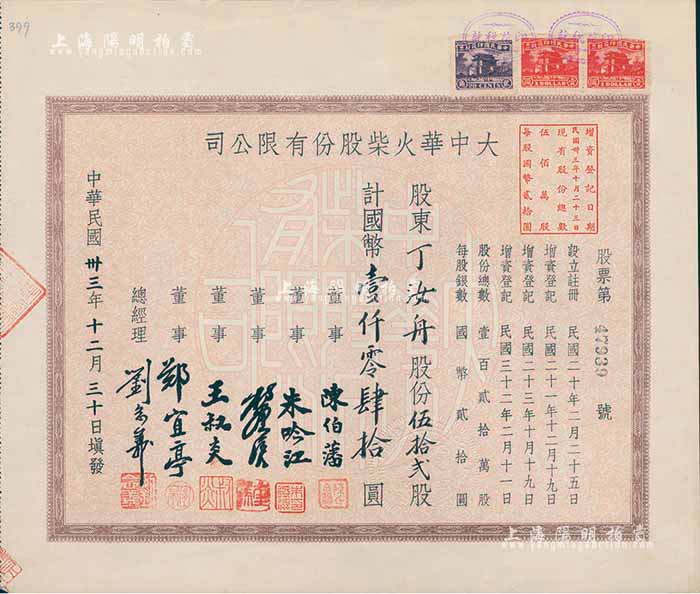 399
上海陽明拍賣
www.yangmingauction.com
大中華火柴股份有限公司
增資登記日期
民國卅三年十月二十三日
現有股份總數
伍佰萬股
每股國幣貳拾圓
股票第 47939 號
設立註冊 民國二十年二月二十五日
增資登記 民國二十一年十二月十九日
增資登記 民國二十三年十月十九日
增資登記 民國三十二年二月十一日
股份總數 壹百貳拾萬股
每股銀數 國幣貳拾圓
股東丁汝舟股份伍拾弍股
計國幣壹仟零肆拾圓
董事 陳伯藩
董事 朱吟江
董事
董事 王叔炎
董事 鄭宜亭
總經理 劉念義
中華民國卅三年十二月三十日填發
上海陽明拍賣
上海陽明拍賣
www.yangmingauction.com